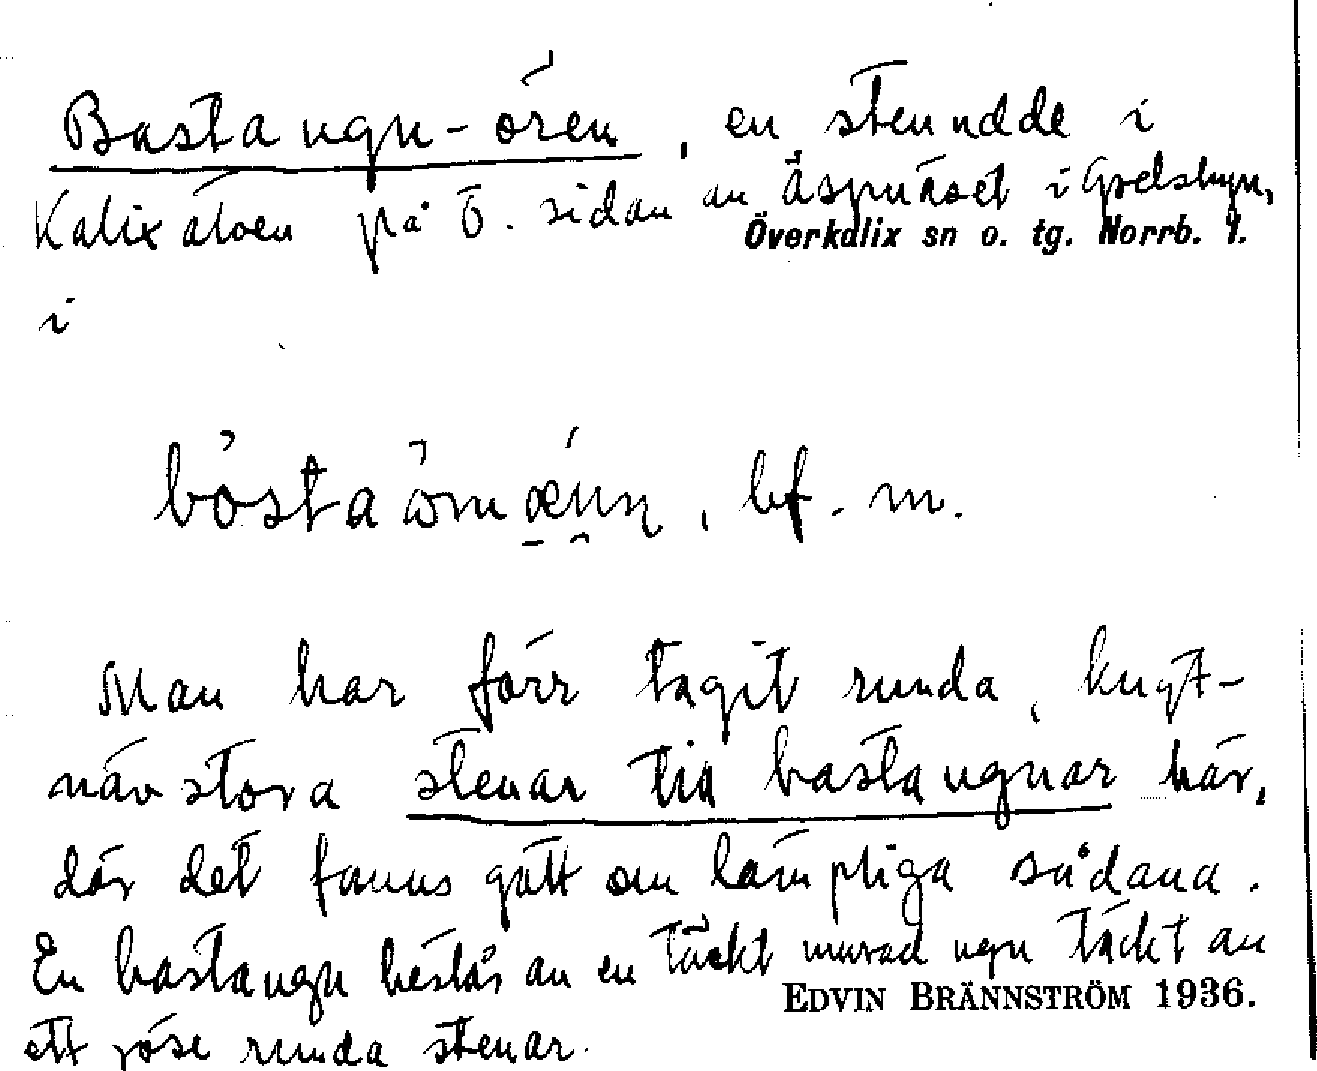 Bastaugn-ören, en stenudde i
Kalixälven på ö. sidan av Äspnäset i Grelsbyn,
Överkalix sn o. tg. Norrb. l.
i
bf. m.
Man har förr tagit runda, knyt-
näv stora stenar till bastaugnar här,
där det fanns gott om lämpliga sådana.
En bastaugn består av en täckt murad ugn täckt av
EDVIN BRÄNNSTRÖM 1936.
ett röse runda stenar.